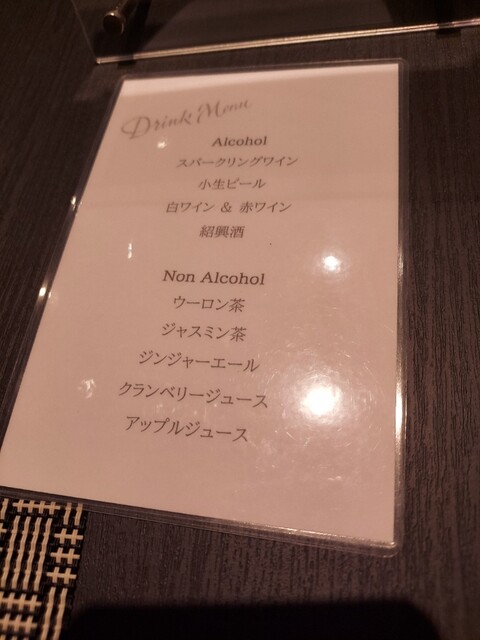 Drink Menu
Alcohol
スパークリングワイン
小生ビール
白ワイン & 赤ワイン
紹興酒
Non Alcohol
ウーロン茶
ジャスミン茶
ジンジャーエール
クランベリージュース
アップルジュース